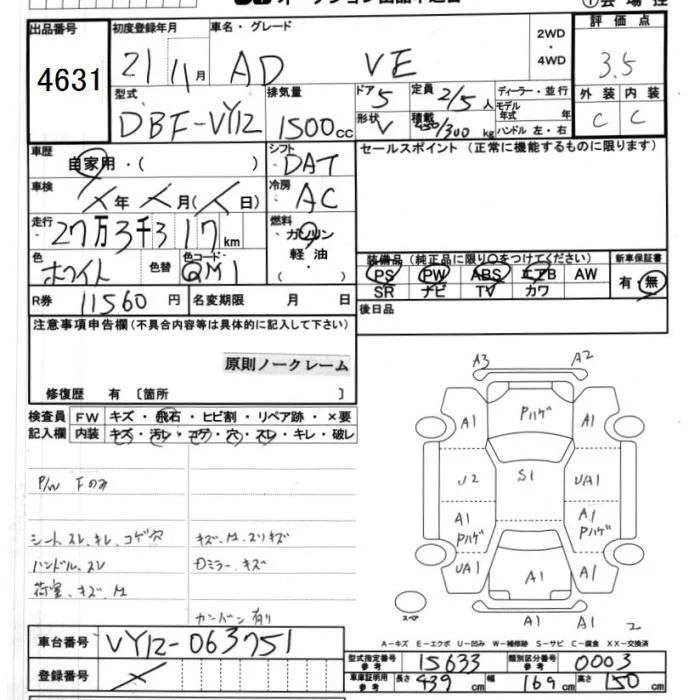 出品番号
4631
初度登録年月
21 11月
車名・グレード
AD VE
2WD
・
4WD
評価点
3.5
型式
DBF-VY12
排気量
1500cc
ドア
5
定員
2/5人
ディーラー・並行
モデル年式 年
ハンドル 左・右
外装 内装
C C
形状
V
積載
450/300kg
車歴
自家用・( )
シフト
DAT
セールスポイント (正常に機能するものに限ります)
車検
年 月( 日)
冷房
AC
走行
27万3千317km
燃料
・ガソリン
軽油
・( )
色
ホワイト
色替
色コード
QM1
装備品 (純正品に限り〇をつけてください)
PS PW ABS エアB AW
SR ナビ TV カワ
新車保証書
有・無
R券 11560円
名変期限 月 日
後日品
注意事項申告欄(不具合内容等は具体的に記入して下さい)
原則ノークレーム
修復歴 有 〔箇所 〕
検査員
記入欄
FW キズ・飛石・ヒビ割・リペア跡・×要
内装 キズ・汚レ・コゲ・穴・スレ・キレ・破レ
P/W Fのみ
シート、スレ、キレ、コゲ穴
ハンドル、スレ
荷室、キズ、M
キズ、M、スリキズ
Dミラー、キズ
カンバン有り
A3 A2
A1 Pハゲ A1
U2 S1 UA1
A1 Pハゲ A1 Pハゲ
UA1 A1 A1
スペア
A1 A1 2
A-キズ E-エクボ U-凹み W-補修跡 S-サビ C-腐食 XX-交換済
車台番号 VY12-063751
登録番号
型式指定番号
参考
15633
類別区分番号
参考
0003
車庫証明用
参考
長さ 439cm 幅 169cm 高さ 150cm